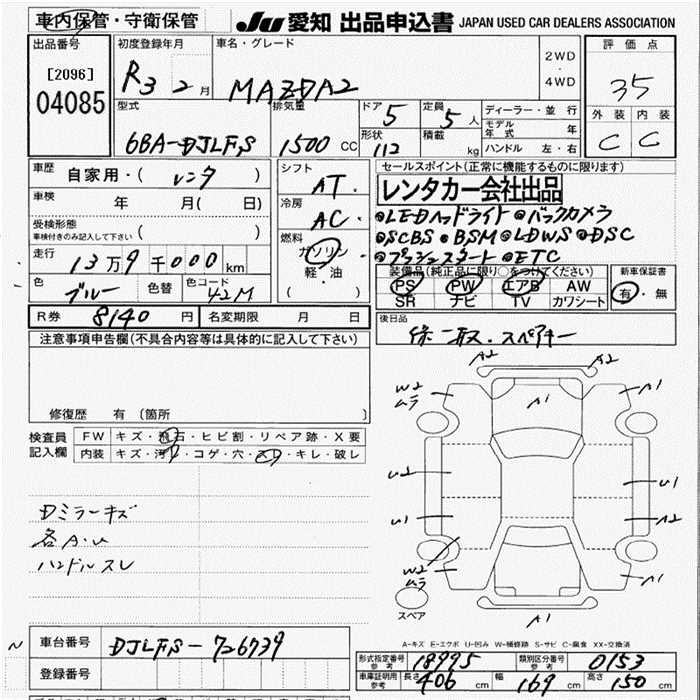 車内保管・守衛保管 JU 愛知 出品申込書 JAPAN USED CAR DEALERS ASSOCIATION
出品番号 [2096] 04085
初度登録年月 R3 2 月
車名・グレード MAZDA2
2WD・4WD
評価点 35
外装 C 内装 C
型式 6BA-DJLFS
排気量 1500 CC
ドア 5 形状 112
定員 5 人 積載 kg
ディーラー・並行
モデル年式 年
ハンドル 左・右
車歴 自家用・(レンタ)
車検 年 月( 日)
受検形態 車検付きのみ記入して下さい ( )
走行 13万9千000km
色 ブルー 色替 色コード 42M
シフト AT
冷房 AC
燃料 ガソリン 軽・油 ( )
セールスポイント(正常に機能するものに限ります)
レンタカー会社出品
●LEDヘッドライト ●バックカメラ
●SCBS ●BSM ●LDWS ●DSC
●プッシュスタート ●ETC
装備品(純正品に限り○をつけてください)
PS PW エアB AW
SR ナビ TV カワシート
新車保証書 有・無
R券 8140 円 名変期限 月 日
後日品 保一取.スペアキー
注意事項申告欄(不具合内容等は具体的に記入して下さい)
修復歴 有(箇所 )
検査員記入欄
FW キズ・飛石・ヒビ割・リペア跡・X要
内装 キズ・汚レ・コゲ・穴・スレ・キレ・破レ
Dミラーキズ
各A.U
ハンドルスレ
A2 A2
W2 ムラ A1 A1
U2 U1
U1 A2
W2 ムラ A1
スペア A1
A-キズ E-エクボ U-凹み W-補修跡 S-サビ C-腐食 XX-交換済
車台番号 DJLFS-726739
登録番号
形式指定番号 参考 18995 類別区分番号 参考 0153
車庫証明用 参考 長さ 406 cm 幅 169 cm 高さ 150 cm